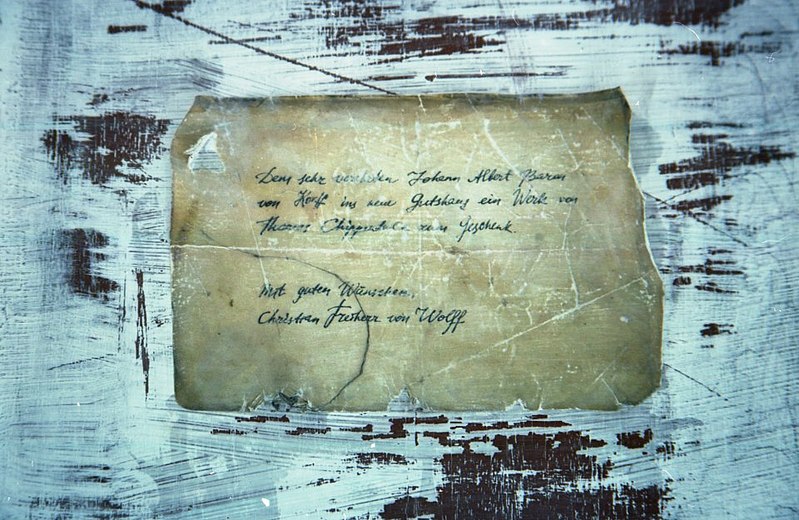 Dem sehr verehrten Johann Albert Baron
von Korff ins neue Gutshaus ein Werk von
Thomas Chippendale zum Geschenk.
Mit guten Wünschen,
Christian Freiherr von Wolff